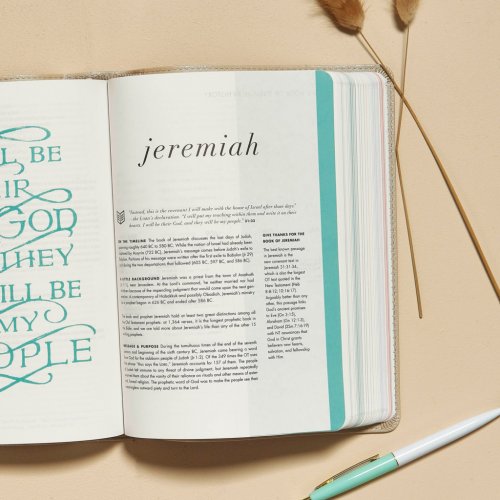 LL BE
EIR
GOD
THEY
ILL BE
MY
EOPLE
jeremiah
"Instead, this is the covenant I will make with the house of Israel after those days"
- the LORD's declaration. "I will put my teaching within them and write it on their
hearts. I will be their God, and they will be my people." 31:33
IN THE TIMELINE The book of Jeremiah discusses the last days of Judah,
roughly 640 BC to 580 BC. While the nation of Israel had already been
by Assyria (722 BC), Jeremiah's message comes before Judah's exile to
of his message were written after the exile to Babylon
during the two deportations that followed (605 BC, 597 BC, and 586 BC).
LITTLE BACKGROUND Jeremiah was a priest from the town of Anathoth
near Jerusalem. At the Lord's command, he neither married nor had
because of the impending judgment that would come upon the next gen-
A contemporary of Habakkuk and possibly Obadiah, Jeremiah's ministry
began in 626 BC and ended after 586 BC.
book and prophet Jeremiah hold at least two great distinctions among all
Old Testament prophets. at 1,364 verses, it is the longest prophetic book in
Bible, and we are told more about Jeremiah's life than any of the other 15
MESSAGE & PURPOSE During the tumultuous times of the end of the seventh
and beginning of the sixth century BC, Jeremiah came bearing a word
God for the stubborn people of Judah
"thus says the LORD," Jeremiah accounts for 157 of them. The people
felt immune to any threat of divine judgment, but Jeremiah repeatedly
them about the vanity of their reliance on rituals and other means of exter-
religion. The prophetic word of God was to make the people see their
outward piety and turn to the Lord.
GIVE THANKS FOR THE
BOOK OF JEREMIAH
The best known
passage in Jeremiah is
the new
covenant text in
Jeremiah 31:31-34,
which is also the longest
OT text quoted in the
New Testament (Heb
8:8-12;10:16,17).
Arguably better than any
other, this passage links
God's ancient promises
to Eve (Gn 3:15),
Abraham (Gn 12:1-3),
and David (2Sm 7:16,19)
with NT assurances that
God in Christ grants
believers new hearts,
salvation, and fellowship
with Him.